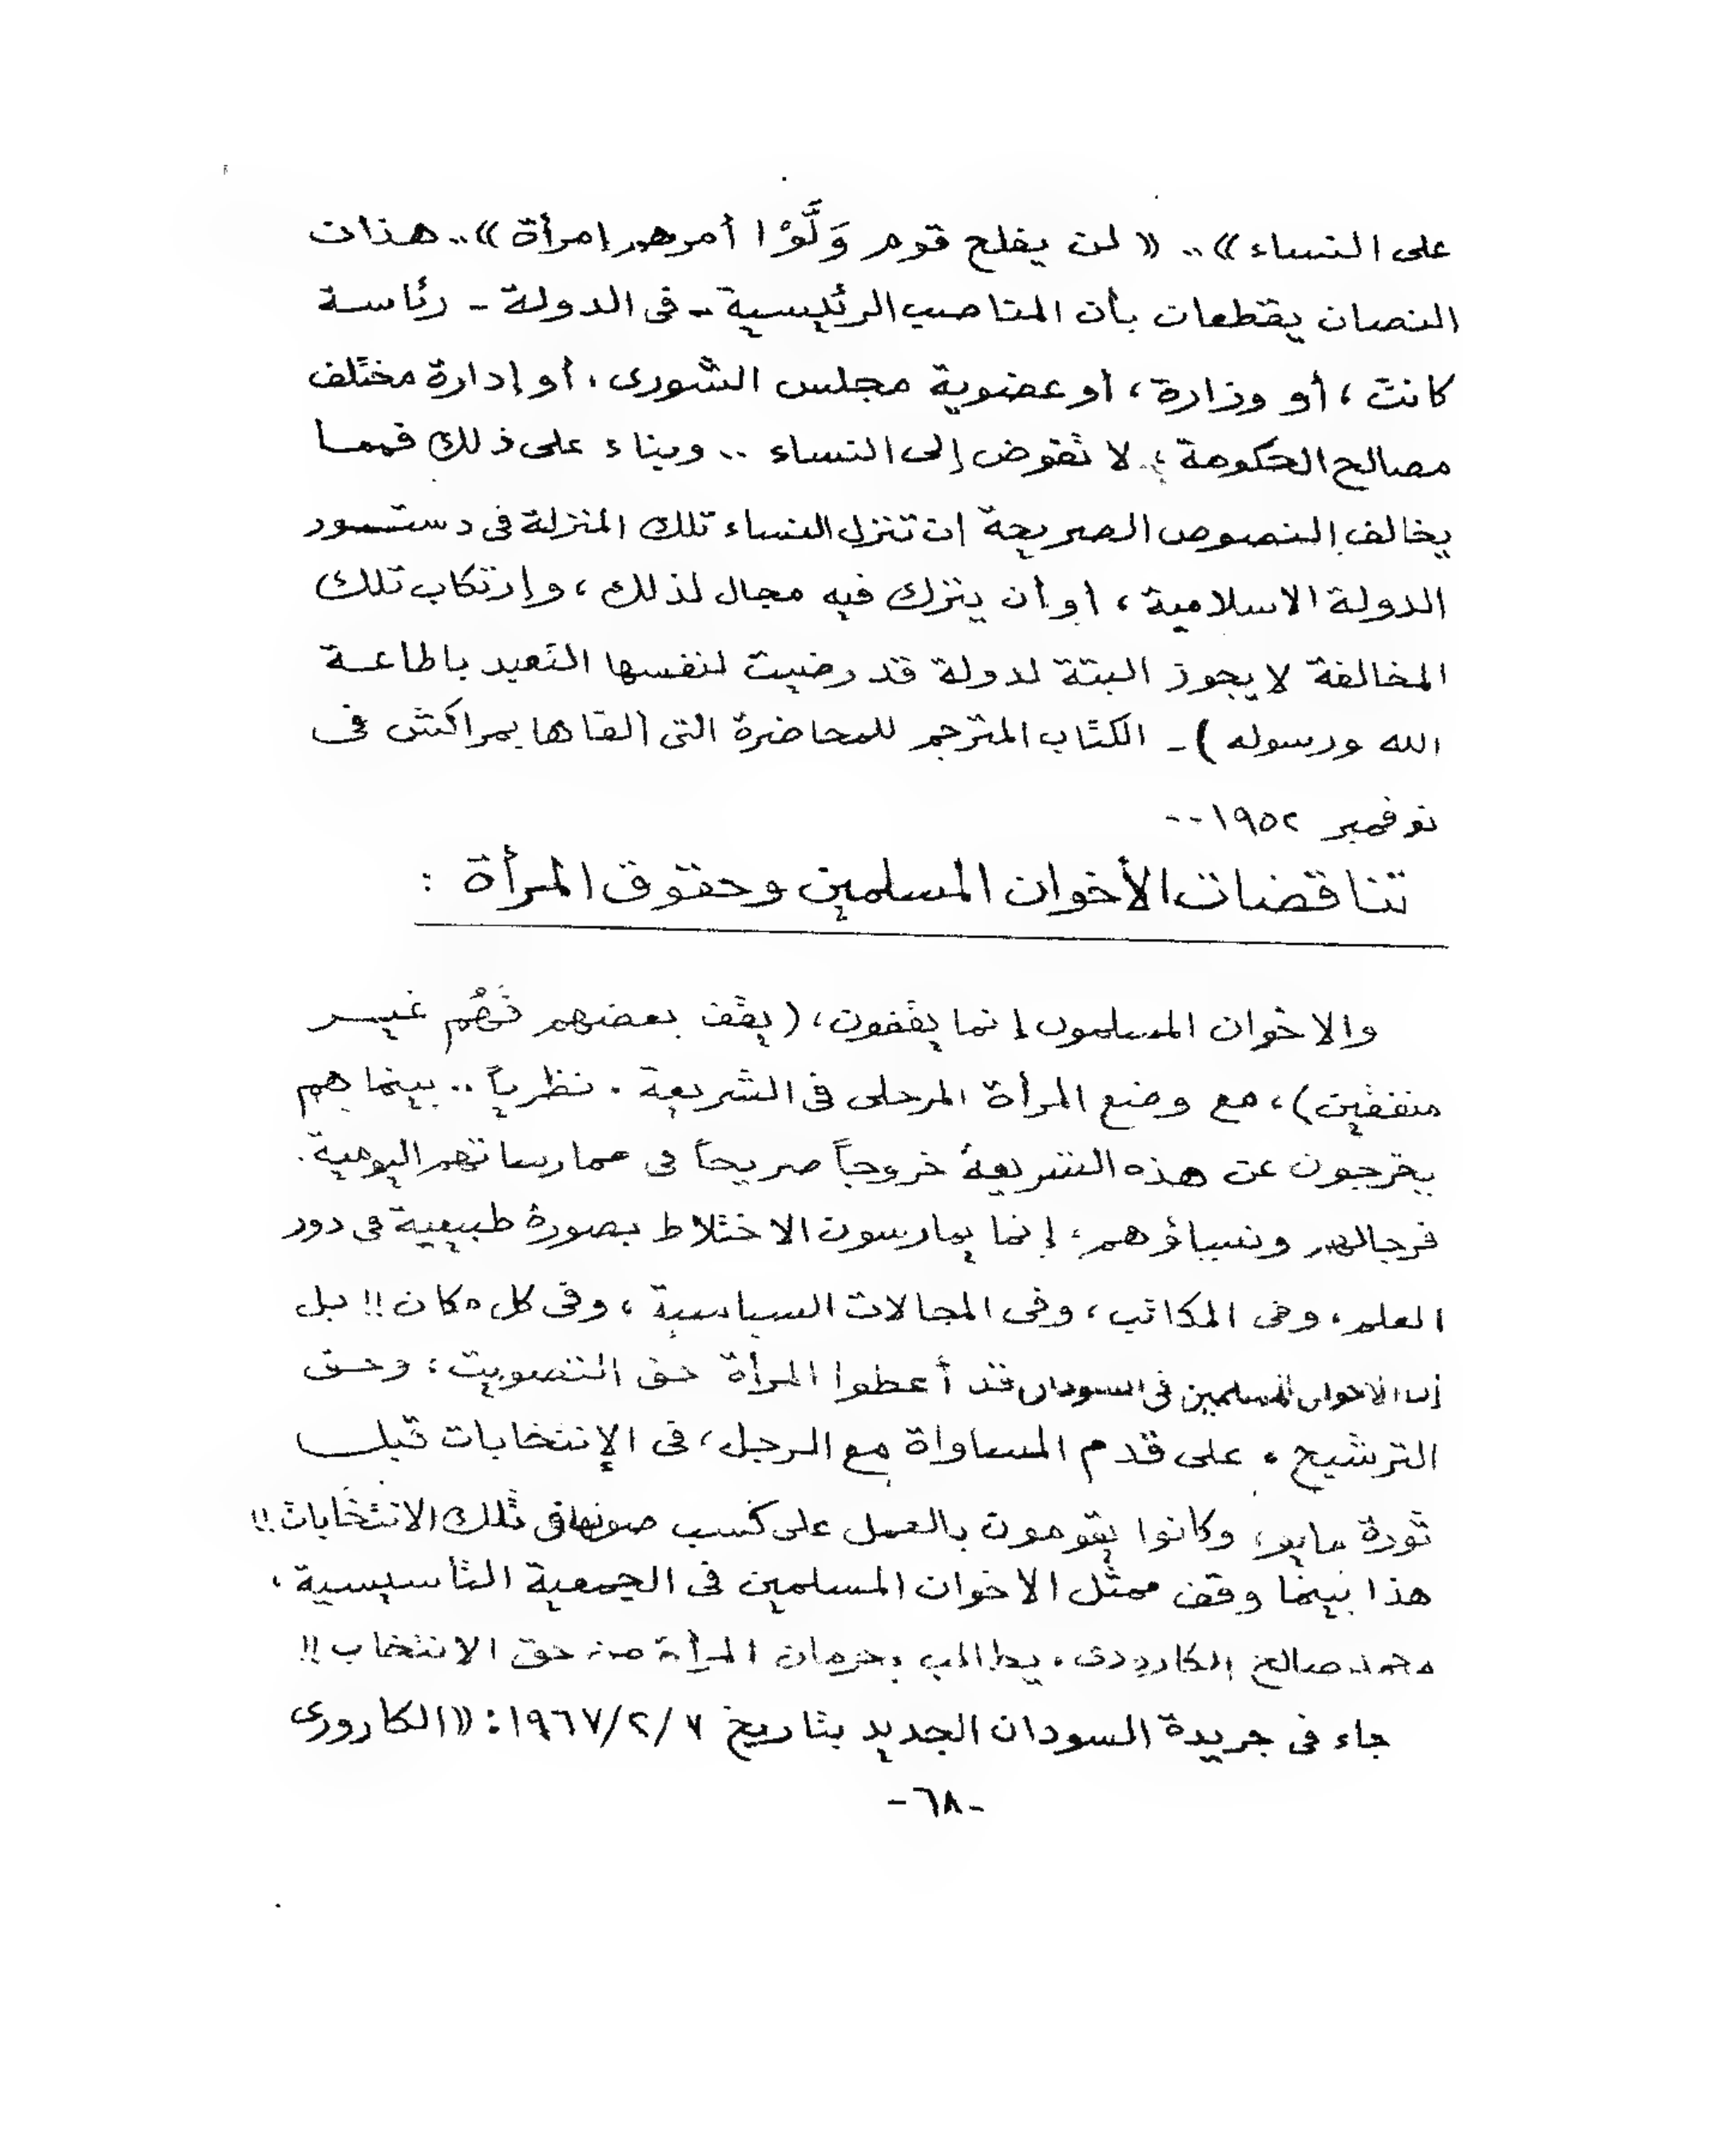 على النساء» .. «لن يفلح قوم وَلَّوْا أمرهم امرأة» .. هذان
النصان يقطعان بأن المناصب الرئيسية - فى الدولة - رئاسة
كانت ، أو وزارة ، أو عضوية مجلس الشورى ، أو إدارة مختلف
مصالح الحكومة ؛ لا تفوض إلى النساء .. وبناء على ذلك فمما
يخالف النصوص الصريحة ان تنزل النساء تلك المنزلة فى دستور
الدولة الاسلامية ، أو أن يترك فيه مجال لذلك ، وارتكاب تلك
المخالفة لا يجوز البتة لدولة قد رضيت لنفسها التعبد باطاعة
الله ورسوله ) - الكتاب المترجم للمحاضرة التى القاها بمراكش فى
نوفمبر ١٩٥٢ --
تناقضات الأخوان المسلمين وحقوق المرأة :
والاخوان المسلمون إنما يقفون ، (يقف بعضهم فَهُم غير
متفقين) ، مع وضع المرأة المرحلى فى الشريعة . نظرياً .. بينما هم
يخرجون عن هذه الشريعة خروجاً صريحاً فى ممارساتهم اليومية .
فرجالهم ونساؤهم ، إنما يمارسون الاختلاط بصورة طبيعية فى دور
العلم ، وفى المكاتب ، وفى المجالات السياسية ، وفى كل مكان !! بل
إن الاخوان المسلمين فى السودان قد أعطوا المرأة حق التصويت ، وحق
الترشيح ، على قدم المساواة مع الرجل ، فى الإنتخابات قبل
ثورة مايو ، وكانوا يقومون بالعمل على كسب صوتها فى تلك الانتخابات !!
هذا بينما وقف ممثل الاخوان المسلمين فى الجمعية التأسيسية ،
محمد صالح الكارورى ، يطالب بحرمان المرأة من حق الانتخاب !!
جاء فى جريدة السودان الجديد بتاريخ ٧/٢/١٩٦٧ : «الكارورى
-٦٨-